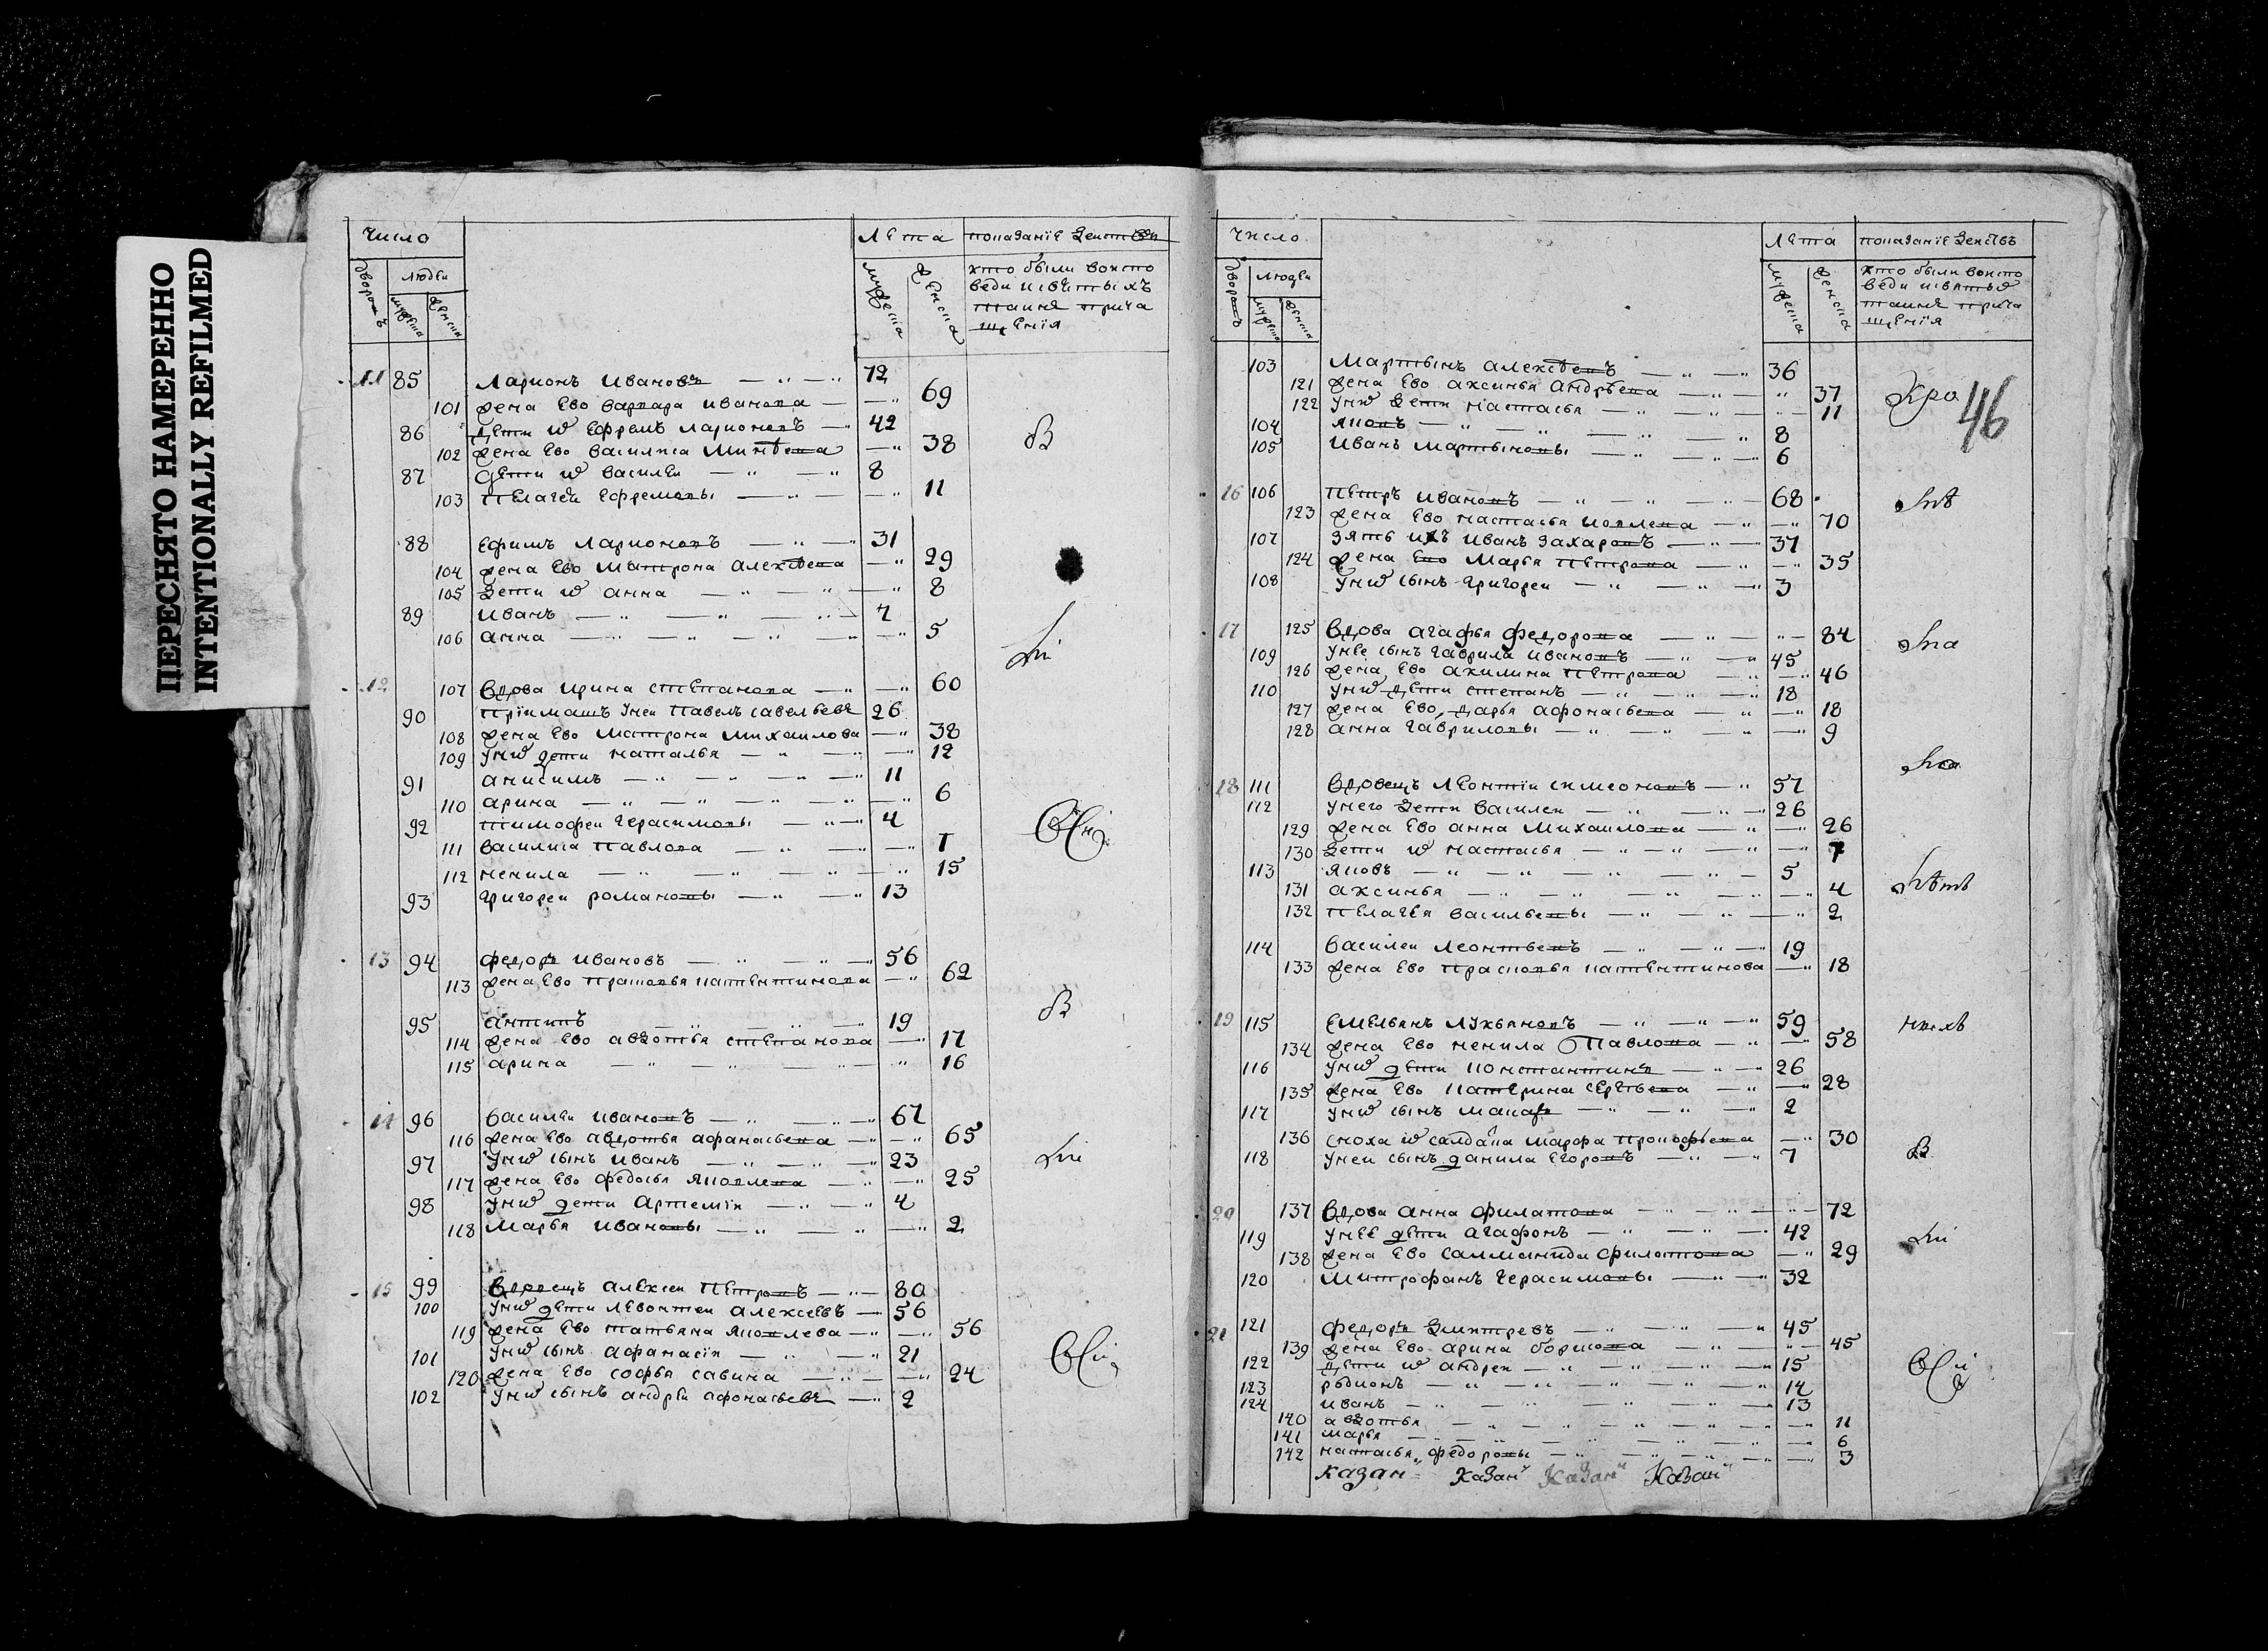 ПЕРЕСНЯТО НАМЕРЕННО
INTENTIONALLY REFILMED
Число
Лѣта
показанїе Действъ
дворовъ
людеи
мужеска
женска
мужеска
женска
хто были воиспо
веди исвятыхъ
таинъ прича
щенїя
11 85 Ларионъ Ивановъ 72
101 жена Ево варвара иванова 69
86 дети ихъ Ефремъ Ларионовъ 42
102 жена Ево василиса Минѣева 38
87 дети ихъ василеи 8
103 пелагея Ефремовы 11
88 Ефимъ Ларионовъ 31
104 жена Ево Матрона Алексѣева 29
105 дети ихъ анна 8
89 иванъ 7
106 анна 5
12 107 вдова ирина степанова 60
90 приимашъ унеи Павелъ савельевъ 26
108 жена Ево матрона михаилова 38
109 унихъ дети наталья 12
91 анисимъ 11
110 арина 6
92 тимофеи Герасимовы 4
111 василиса павлова 1
112 ненила 15
93 григореи романовы 13
13 94 федоръ ивановъ 56
113 жена Ево Прасковья Калентинова 62
95 антипъ 19
114 жена Ево авдотья степанова 17
115 арина 16
14 96 василеи ивановъ 67
116 жена Ево авдотья афанасьева 65
97 унихъ сынъ иванъ 23
117 жена Ево федосья Яковлева 25
98 унихъ дети Артемїи 4
118 Марья ивановы 2
15 99 вдовецъ алексеи Петровъ 80
100 унихъ дети левонтеи алексеевъ 56
119 жена Ево татьяна Яковлева 56
101 унихъ сынъ афанасїи 21
120 жена Ево софья савина 24
102 унихъ сынъ андреи афонасьевъ 2
Число
Лѣта
показанїе Действъ
дворовъ
людеи
мужеска
женска
мужеска
женска
хто были воиспо
веди исвятыхъ
таинъ прича
щенїя
46
103 Мартынъ алексѣевъ 36
121 жена Ево аксинья Андрѣева 37
122 унихъ дети настасья 11
104 яковъ 8
105 иванъ мартыновы 6
16 106 Петръ ивановъ 68
123 жена Ево настасья иовлева 70
107 зять ихъ иванъ захаровъ 37
124 жена Ево Марья петрова 35
108 унихъ сынъ григореи 3
17 125 вдова агафья федорова 84
109 унее сынъ гаврила ивановъ 45
126 жена Ево акилина петрова 46
110 унихъ дети степанъ 18
127 жена Ево дарья афонасьева 18
128 анна гавриловы 9
18 111 вдовецъ леонтїи симеоновъ 57
112 унего дети василеи 26
129 жена Ево анна Михаилова 26
130 дети ихъ настасья 7
113 яковъ 5
131 аксинья 4
132 пелагея васильевы 2
114 василеи леонтьевъ 19
133 жена Ево прасковья калентинова 18
19 115 Емельянъ лукьяновъ 59
134 жена Ево ненила Павлова 58
116 унихъ дети константинъ 26
135 жена Ево катерина сергѣева 28
117 унихъ сынъ макаръ 2
136 сноха ихъ салдатка марфа прокофьева 30
118 унеи сынъ данила Егоровъ 7
20 137 вдова анна филатова 72
119 унее дети агафонъ 42
138 жена Ево саламанида филатова 29
120 митрофанъ герасимовы 32
21 121 федоръ Дмитревъ 45
139 жена Ево арина борисова 45
122 дети ихъ андреи 15
123 родионъ 14
124 иванъ 13
140 авдотья 11
141 марья 6
142 настасья федоровы 3
казан казан казан казан